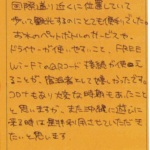 国際通り近くに位置していて
歩いて観光するのにとても便利でした。
お水のペットボトルのサービスや、
ドライヤーが使いやすいこと、FREE
WiFiのQRコード接続が使用え
ることが、宿泊者として嬉しかったです。
コロナもあり大変な時期もあったこと
と思いますが、また沖縄に遊びに
来る時は是非利用させていただき
たいと思います